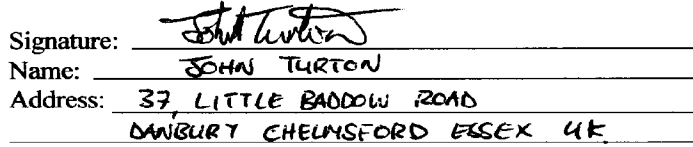 Signature: John Turton
Name: JOHN TURTON
Address: 37, LITTLE BADDOW ROAD
DANBURY CHELMSFORD ESSEX UK